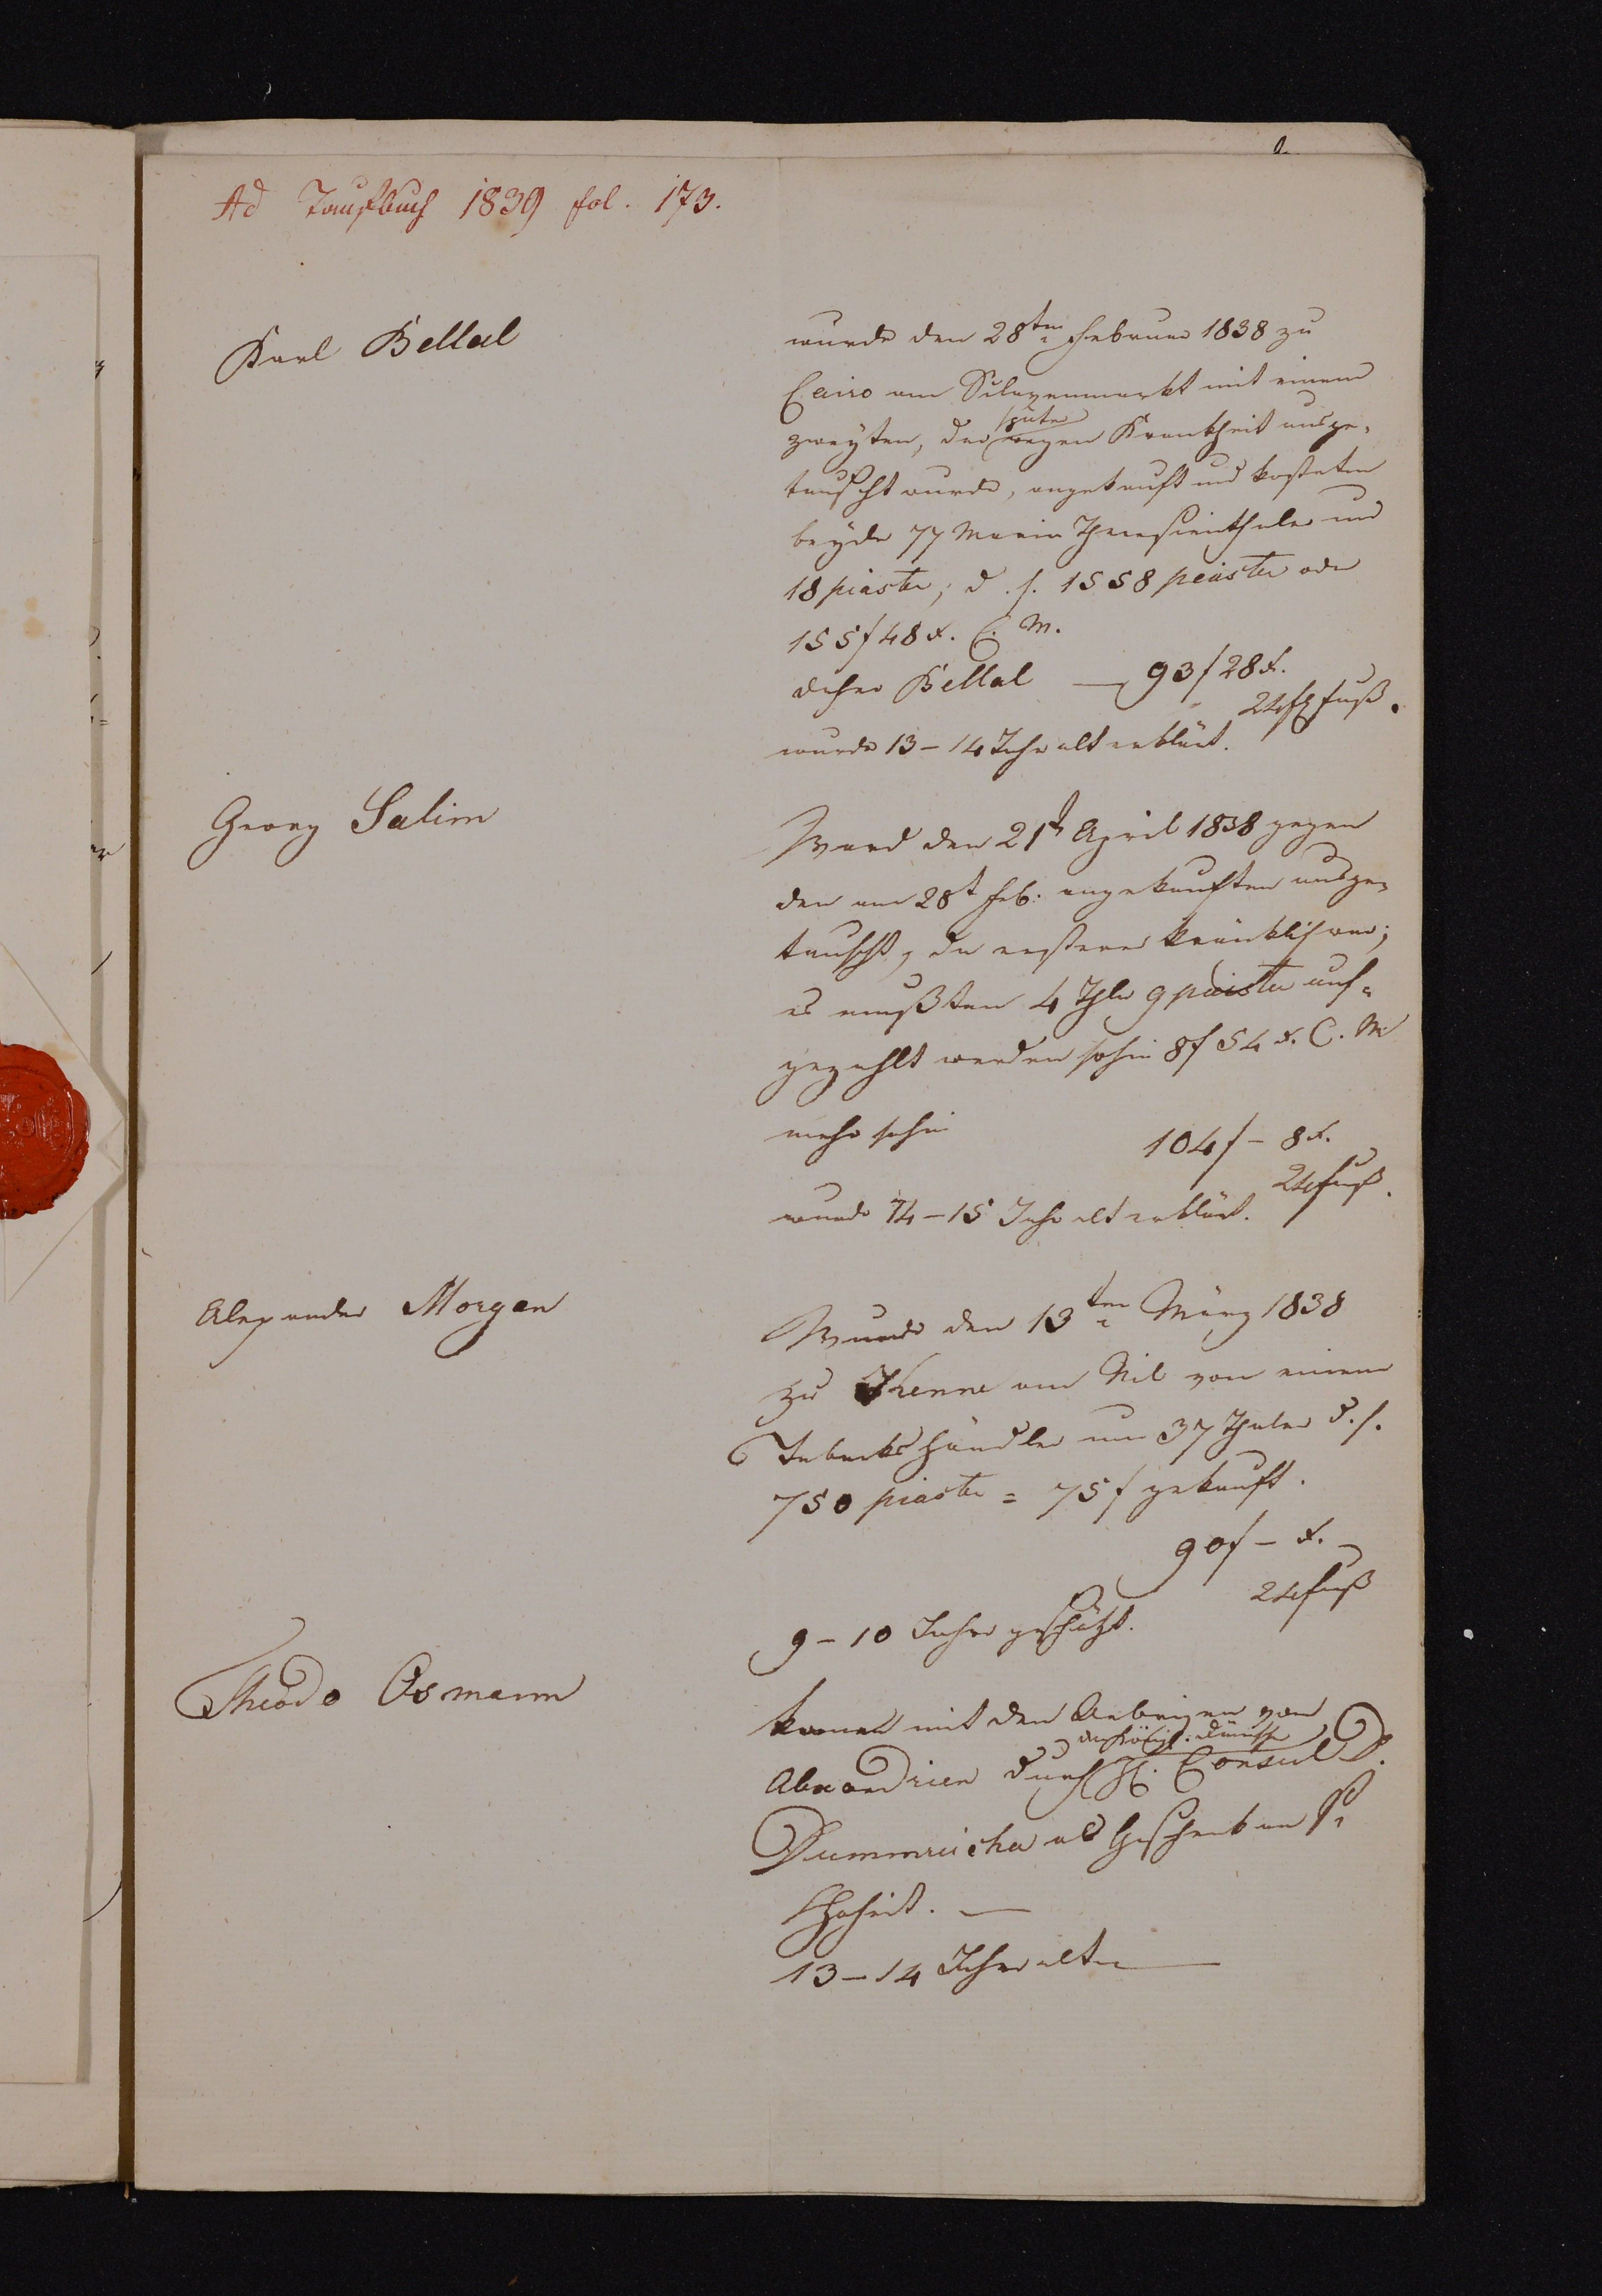 Ad Taufbuch 1839 fol. 173.
Karl Bellal
wurde den 28ten Februar 1838 zu
Cairo am Sclavenmarkt mit einem
später
zweyten, der wegen Krankheit ausge-
tauscht wurde, angekauft und kosteten
beyde 77 Maria Theresienthaler und
18 piaster; d. h. 1558 peaster oder
155 f 48 x. C. M.
daher Bellal — 93 f 28 x.
24 fl fuß.
wurde 13 – 14 Jahr alt erklärt.
Georg Salim
Ward den 21t April 1838 gegen
den am 28t Feb: angekauften ausge-
tauscht, da ersterer kränklich war;
es mußten 4 Thlr 9 piaster auf-
gezahlt werden sohin 8 f 54 x. C. M
mehr sohin
104 f – 8 x.
24 fuß.
wurde 14 – 15 Jahr alt erklärt.
Alexander Morgan
Wurde den 13ten März 1838
zu Kenne am Nil von einem
Tabackshändler um 37 Thaler d. h.
750 piaster = 75 f gekauft.
90 f – x.
24 fuß
9 – 10 Jahre geschätzt.
Theodo Osmann
kamen mit den Uebrigen von
dänische
Alexandrien durch H. Consul D.
Dummreicher als Geschenk an Sr
Hoheit. —
13 – 14 Jahr alt —